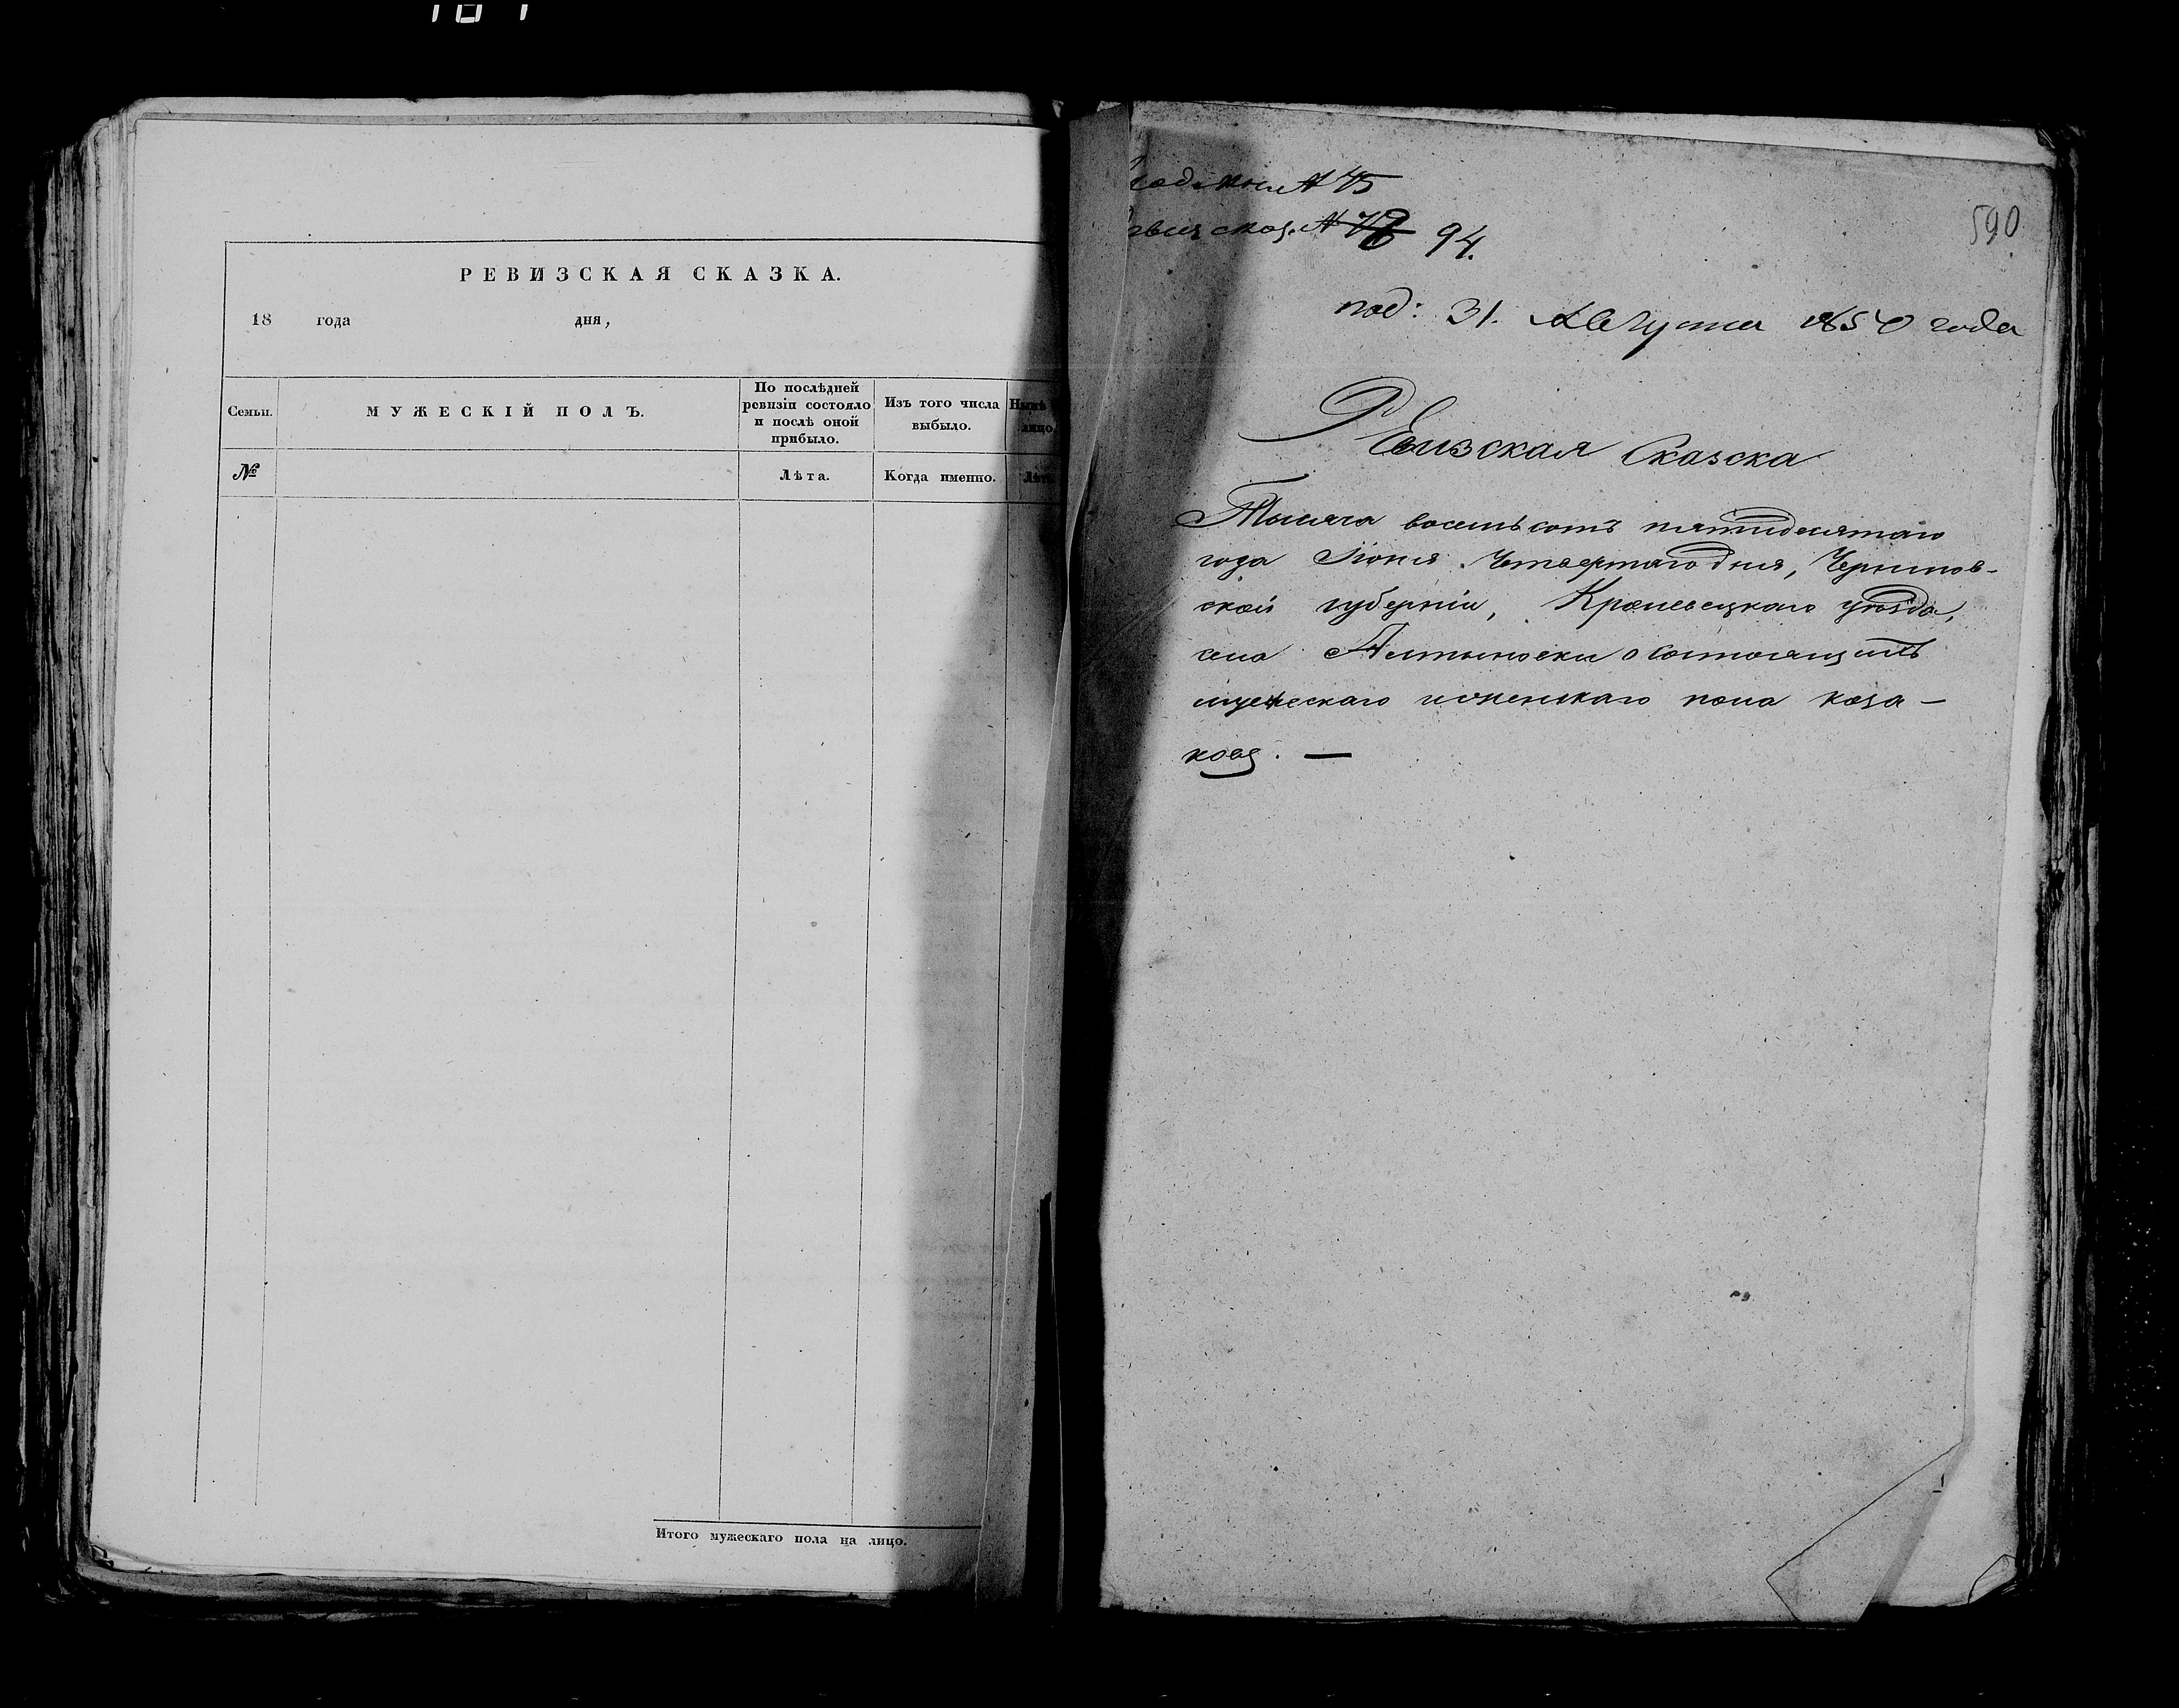 РЕВИЗСКАЯ СКАЗКА.
18 года дня,
Семьи.
МУЖЕСКІЙ ПОЛЪ.
По послѣдней
ревизіи состояло
и послѣ оной
прибыло.
Изъ того числа
выбыло.
Нынѣ
лицо.
№
Лѣта.
Когда именно.
Лѣта
Итого мужескаго пола на лицо.
№ 45
№ 78 94.
590
под: 31. Августа 1850 года
Ревизская Сказска
Тысяча восемьсотъ пятидесятаго
года Іюня Четвертаго дня, Чернигов-
ской губерніи, Кролевецкаго уезда,
села Алтыновки о состоящихъ
мужескаго и женскаго пола коза-
ковъ. —